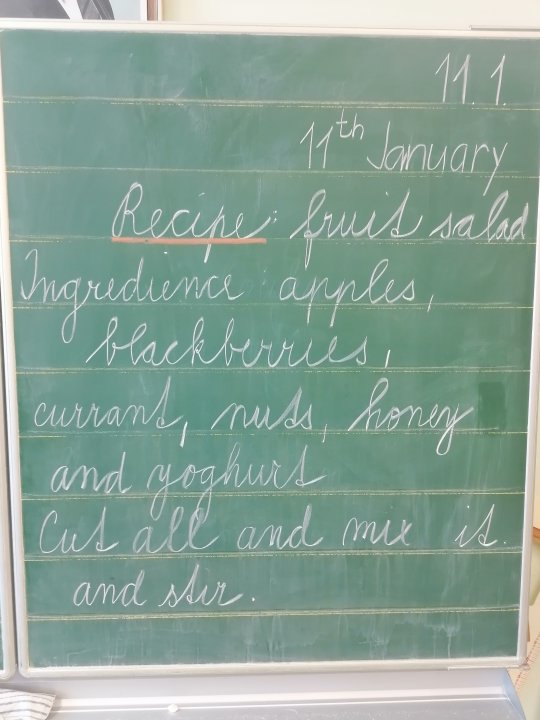 11. 1.
11th January
Recipe: fruit salad
Ingredience apples,
blackberries,
currant, nuts, honey
and yoghurt
Cut all and mix it.
and stir.